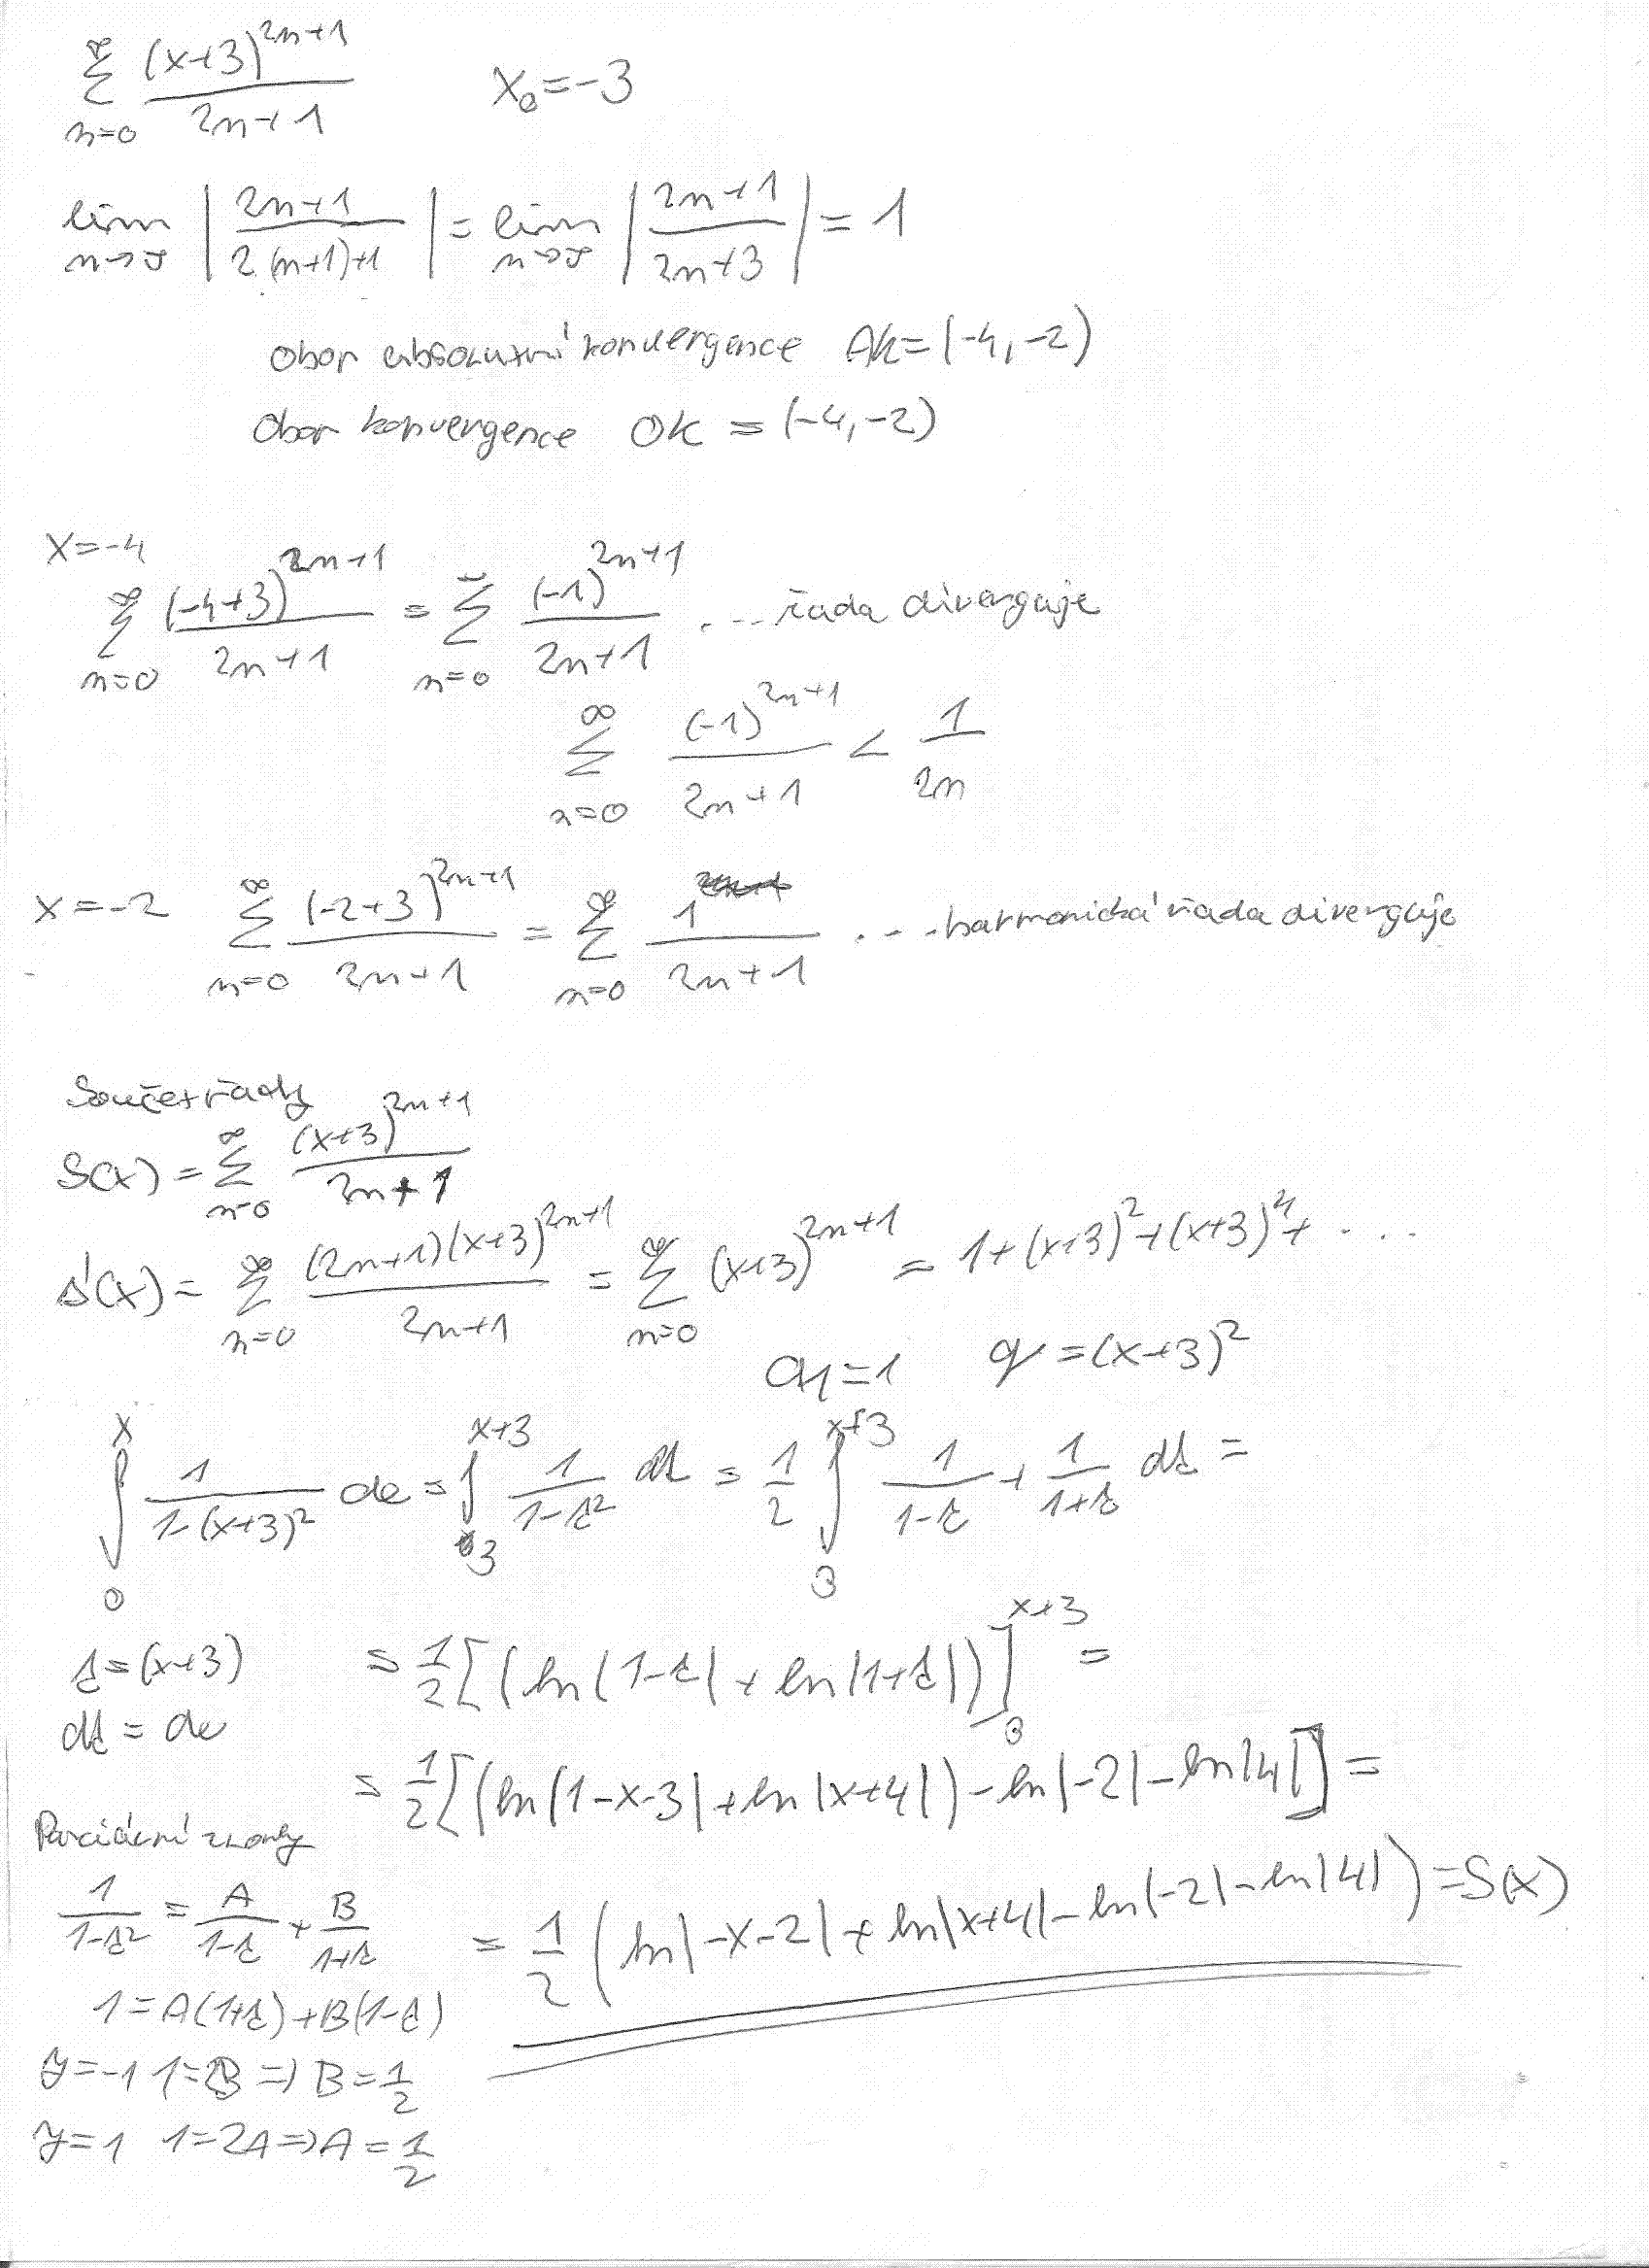 ∑_{n=0}^{∞} (x+3)^{2n+1} / (2n+1)   x₀=-3
lim_{n→∞} | (2n+1) / (2(n+1)+1) | = lim_{n→∞} | (2n+1) / (2n+3) | = 1
obor absolutní konvergence AK=(-4,-2)
Obor konvergence OK = (-4,-2)
x=-4
∑_{n=0}^{∞} (-4+3)^{2n+1} / (2n+1) = ∑_{n=0}^{∞} (-1)^{2n+1} / (2n+1) ... řada diverguje
∑_{n=0}^{∞} (-1)^{2n+1} / (2n+1) < 1 / 2n
x=-2 ∑_{n=0}^{∞} (-2+3)^{2n+1} / (2n+1) = ∑_{n=0}^{∞} 1 / (2n+1) ... harmonická řada diverguje
Součet řady
S(x) = ∑_{n=0}^{∞} (x+3)^{2n+1} / (2n+1)
s'(x) = ∑_{n=0}^{∞} (2n+1)(x+3)^{2n+1} / (2n+1) = ∑_{n=0}^{∞} (x+3)^{2n+1} = 1+(x+3)²+(x+3)⁴+ ...
a₁=1   q=(x+3)²
∫_{0}^{x} 1 / (1-(x+3)²) dx = ∫_{3}^{x+3} 1 / (1-t²) dt = 1/2 ∫_{3}^{x+3} 1/(1-t) + 1/(1+t) dt =
t=(x+3)   = 1/2 [(ln|1-t| + ln|1+t|)]_{3}^{x+3} =
dt = dx
= 1/2 [(ln|1-x-3| + ln|x+4|) - ln|-2| - ln|4|] =
Parciální zlomky
1/(1-t²) = A/(1-t) + B/(1+t)   = 1/2 (ln|-x-2| + ln|x+4| - ln|-2| - ln|4|) = S(x)
1=A(1+t)+B(1-t)
y=-1 1=2B => B=1/2
y=1 1=2A => A=1/2